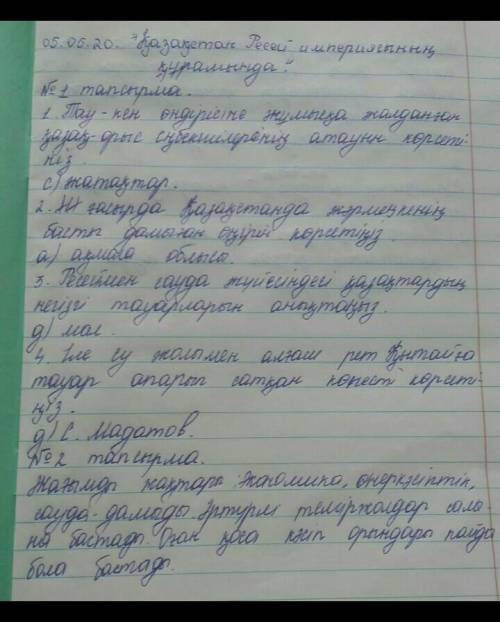 05.05.20. "Қазақстан Ресей империясының
құрамында".
№1 тапсырма.
1. Тау-кен өндірісіне жұмысқа жалданған
қазақ-орыс еңбекшілерінің атауын көрсеті-
ңіз.
с) жатақтар.
2. XIX ғасырда Қазақстанда жәрмеңкенің
басты дамыған өңірін көрсетіңіз.
а) ақмола облысы.
3. Ресеймен сауда жүйесіндегі қазақтардың
негізгі тауарларын анықтаңыз.
д) мал.
4. Іле су жолымен алғаш рет Қытайға
тауар апарып сатқан көпесті көрсеті-
ңіз.
д) С. Мадатов.
№2 тапсырма.
Жағымды жақтары: Экономика, өнеркәсіптік,
сауда-дамыды. Әртүрлі теміржолдар сала
на бастады. Оған қоса кәсіп орындары пайда
бола бастады.